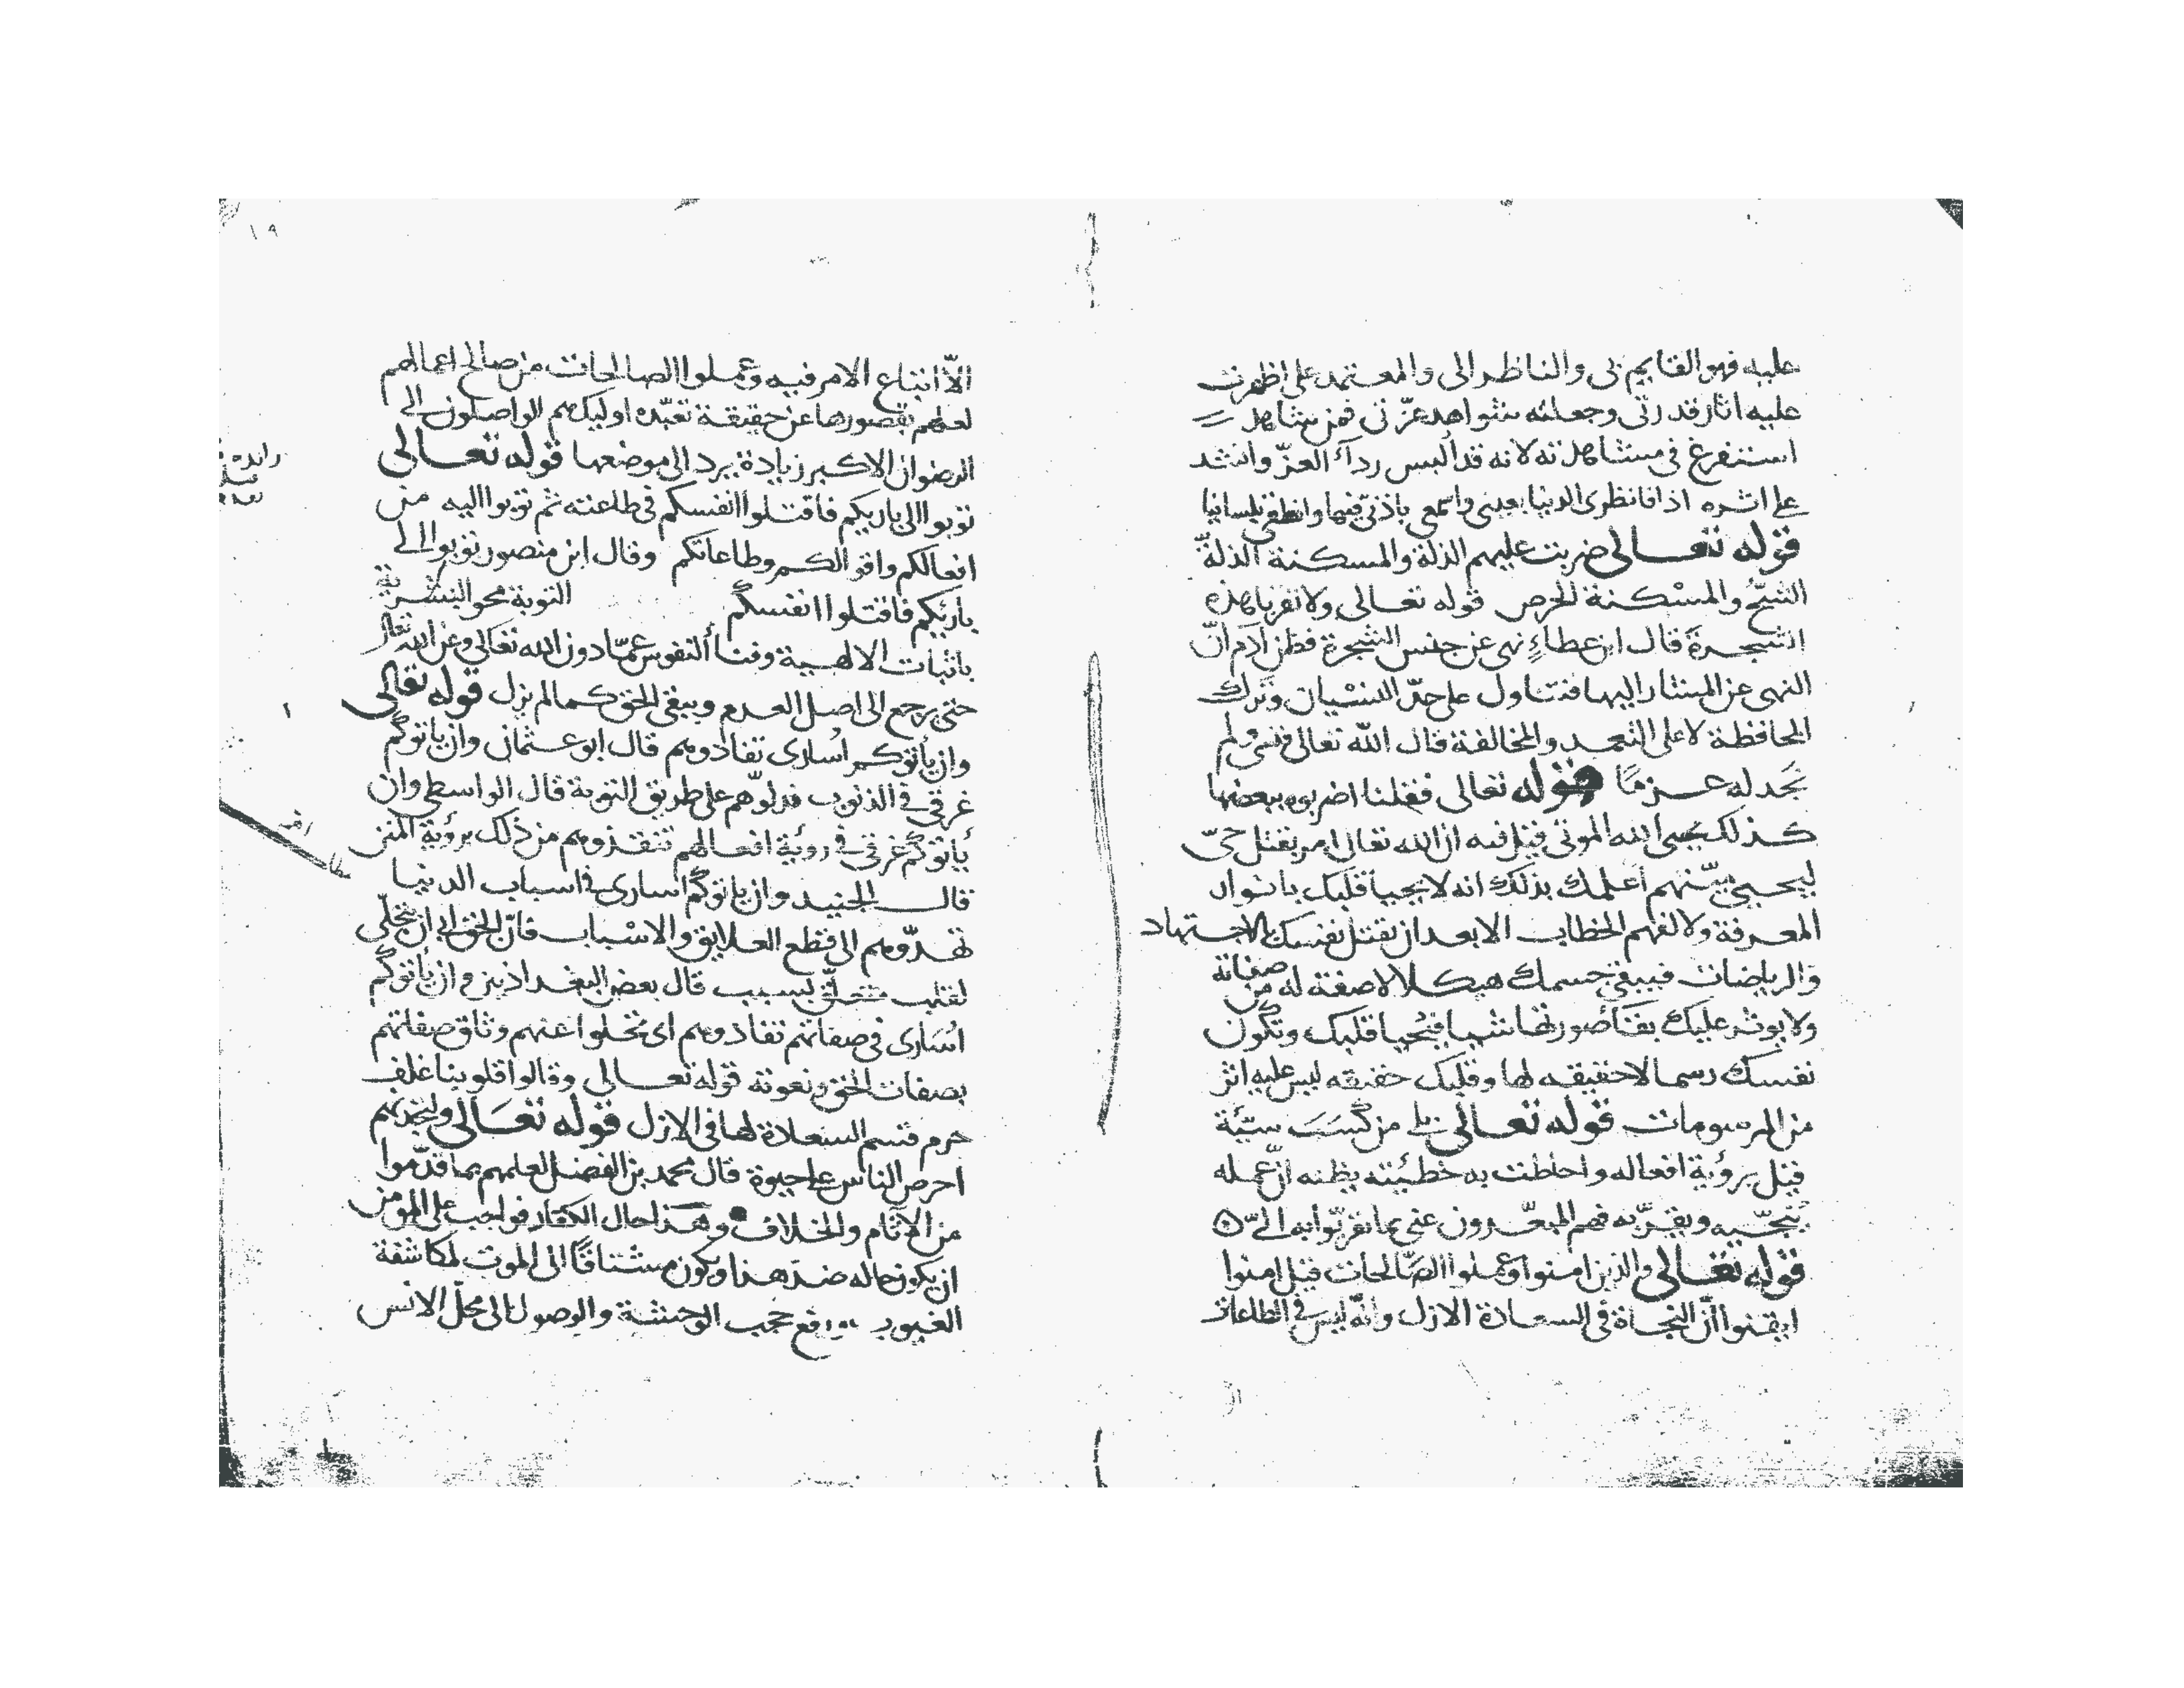 عليه فهو القايم بى والناظر الى والمعتمد على اظهرت
عليه اثار قدرتى وجعلته شواهد عزّتى فمن شاهد
استغرق فى مشاهدته لانه قد ألبس رداء العزّ وانشد
على اثره اذا فانظرى الدنيا بعينى واسمعى باذنىّ فيها وانطقى بلسانيا
قوله تعالى ضربت عليهم الذلة والمسكنة الذلةّ
الشحّ والمسْكنة الحرص قوله تعالى ولا تقربا هذه
الشجرة قال ابن عطاءٍ نهى عن جنس الشجرة فظن آدم انّ
النهى عن المشار اليها فتناول على حدّ النسْيان وترك
المحافظة لا على التعمد والمخالفة قال الله تعالى فنسى ولم
نجد له عزمًا قوله تعالى فقلنا اضربوه ببعضها
كذلك يحيى الله الموتى قيل فيه ان الله تعالى امر بقتل حىّ
ليحيى ميّتهم أعلمك بذلك انه لا يحيا قلبك بانوار
المعرفة ولا لفهم الخطاب الا بعد ان تقتل نفسك بالاجتهاد
والرياضات فيبقى جسمك هيكلا لا صفة له من صفاته
ولا يوثر عليك بقاء صورتها شيا فيحيا قلبك وتكون
نفسك رسما لا حقيقه لها وقلبك حقيقه ليس عليه اثر
من المرسومات قوله تعالى بلى من كسَبَ سيّئة
قيل برؤية افعاله واحاطت به خطيئته بظنه انّ عمله
يُنجّيه ويقرّبه فهم المبعّدون عنى بما تقرّبوا به الىّ
قوله تعالى والذين امنوا وعملوا الصّالحات قيل امنوا
ايقنوا أنّ النجاة فى السعادة الازل وانّه ليس فى الطاعات
الاّ اتباع الامر فيه وعملوا الصالحات من صالح اعمالهم
لعلهم بقصورها عن حقيقة تعبّده اوليك هم الواصلون الى
الرضوان الاكبر زيادة يرد الى موضعها قوله تعالى
توبوا الى باريكم فاقتلوا أنفسكم فى طاعته ثم توبوا اليه من
افعالكم واقوالكم وطاعاتكم وقال ابن منصور توبوا الى
بارئكم فاقتلوا انفسكم التوبة محو البشرية
باثبات الالهية وفناء النفوس عمّا دون الله تعالى وعن الله تعالى
حتى يرجع الى اصل العدم ويبقى الحق كما لم يزل قوله تعالى
وان يأتوكم اُسارى تفادوهم قال ابو عثمان وان ياتوكم
غرقى فى الذنوب فدلّوهم على طريق التوبة قال الواسطى وان
يأتوكم غرقى فى رؤية افعالهم تنقذوهم من ذلك برؤية المنن
قال الجنيد وان ياتوكم أسارى فى اسباب الدنيا
تهدّوهم الى قطع العلايق والاسْباب فانّ الحق ابى ان يتجلّى
لقلب متعلّق بسبب قال بعض البغداذيين وان ياتوكم
اُسَارى فى صفاتهم تفادوهم اى تحلوا عنهم وثاق صفاتهم
بصفات الحق ونعوته قوله تعالى وقالوا قلوبنا غلف
حرم قسم السعادة لها فى الازل قوله تعَالى ولتجدنهم
احرص الناس على حيوة قال محمد بن الفضل لعلمهم بما قدّموا
من الآثام والخلاف وهذا حال الكفار فواجب على المومن
ان يكون حاله ضدّ هذا ويكون مشتاقًا الى الموت لمكاشفة
الغيوب ورفع حجب الوحشة والوصول الى محلّ الانس
١٩